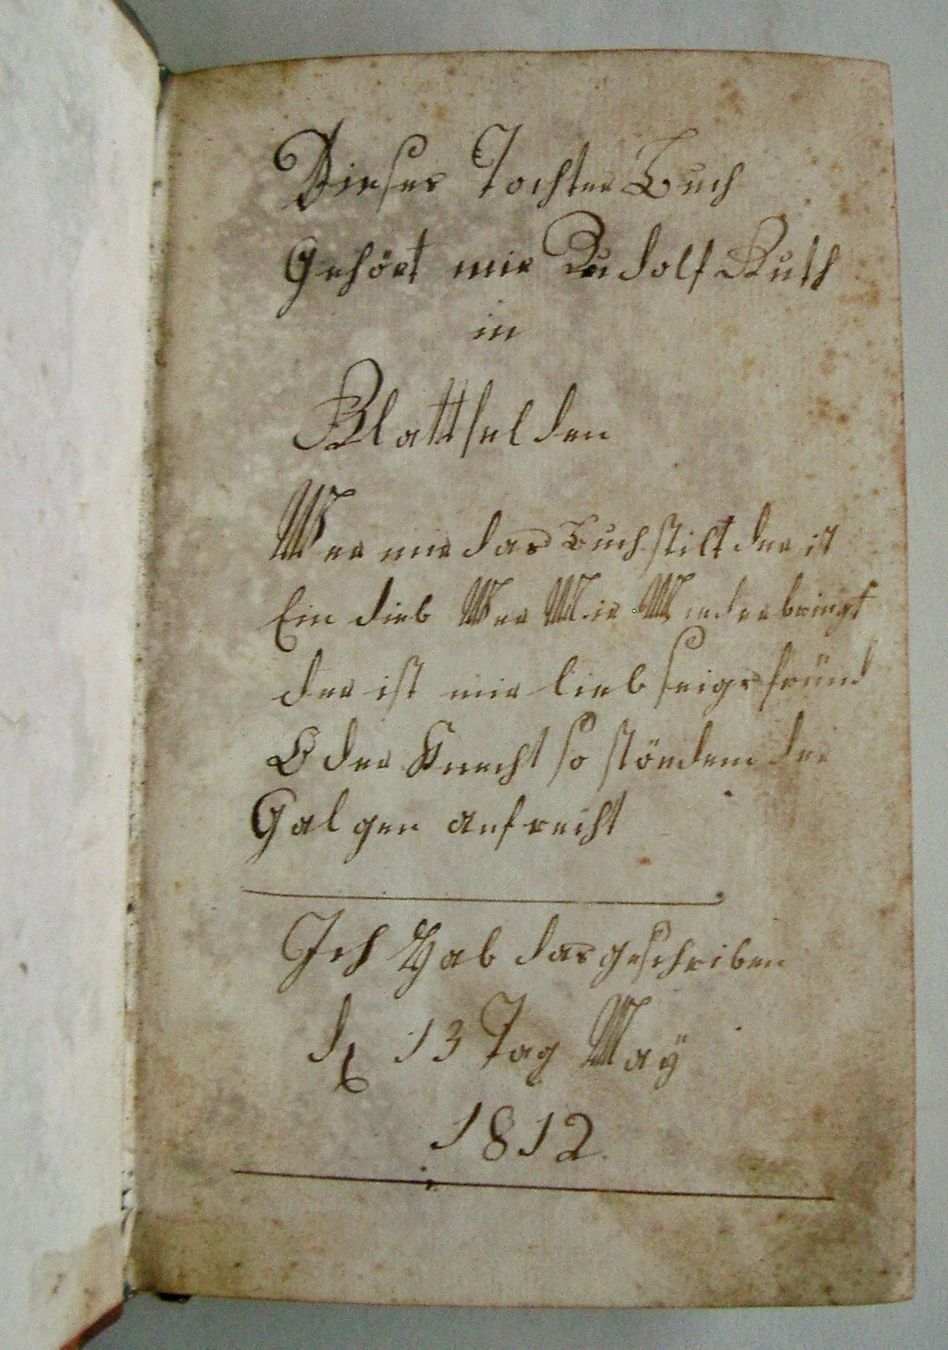 Dieses Tochter Buch
Gehört mir Rudolf Ruth
in
Blattfelden
Wer mir das Buch stilt der ist
Ein dieb Wer Mir Wiederbringt
der ist mir lieb seigs fründ
Oder Knecht so stöndem der
Galgen aufrecht
Ich Hab das geschriben
d 13 Tag May
1812